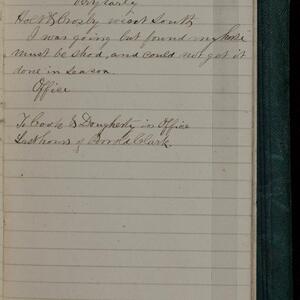 very early
Holt & Crosby went South
I was going but found my horse
must be shod, and could not get it
done in season.
Office
To Cook & Dougherty in Office
Last hours of Clark.